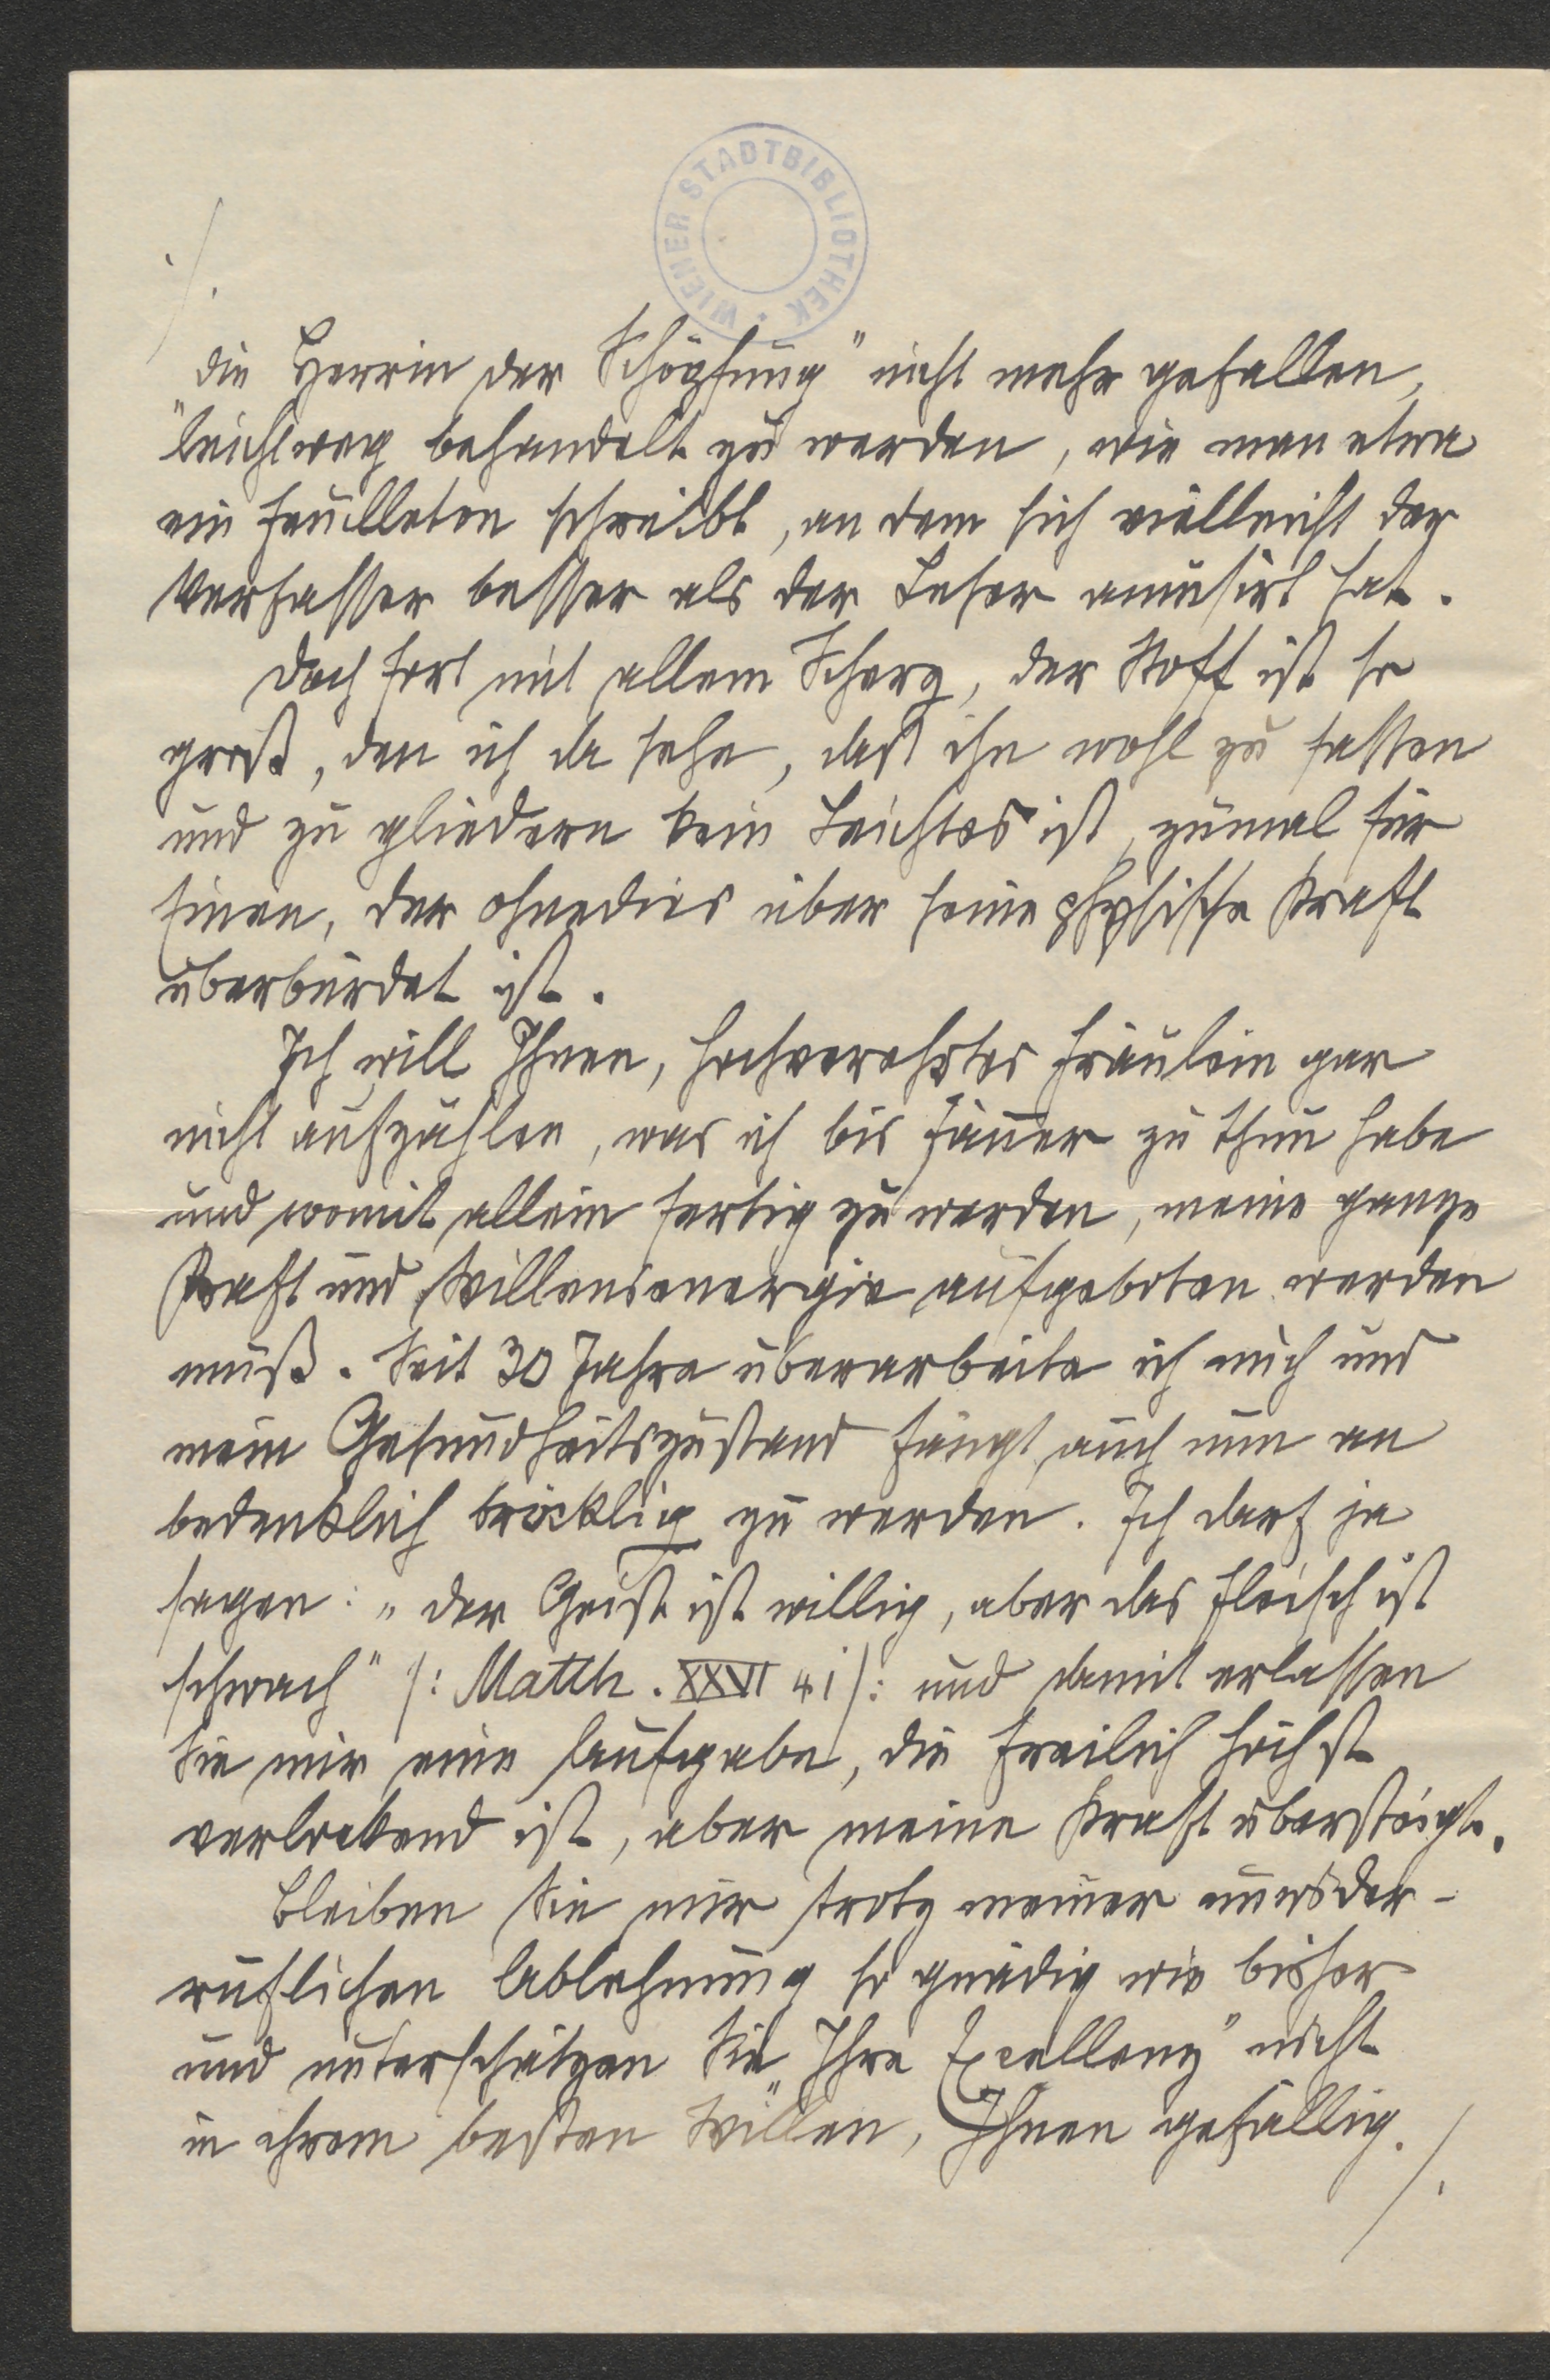 WIENER STADTBIBLIOTHEK
./.
„die Herrin der Schöpfung" nicht mehr gefallen,
leichtweg behandelt zu werden, wie man etwa
ein Feuilleton schreibt, an dem sich vielleicht der
Verfasser besser als der Leser amüsirt hat.
Doch fort mit allem Scherz, der Stoff ist so
groß, den ich da sehe, daß ihn wohl zu fassen
und zu gliedern kein Leichtes ist, zumal für
Einen, der ohnedies über seine physische Kraft
überbürdet ist.
Ich will Ihnen, hochverehrtes Fräulein gar
nicht aufzählen, was ich bis Jänner zu thun habe
und womit allein fertig zu werden, meine ganze
Kraft und Willensenergie aufgeboten werden
muß. Seit 30 Jahre überarbeite ich mich und
mein Gesundheitszustand fängt auch nun an
bedenklich bröcklig zu werden. Ich darf ja
sagen: „der Geist ist willig, aber das Fleisch ist
schwach" /: Matth. XXVI 41 /: und damit erlassen
Sie mir eine Aufgabe, die freilich höchst
verlockend ist, aber meine Kraft übersteigt.
Bleiben Sie mir trotz meiner unwider-
ruflichen Ablehnung so gnädig wie bisher
und unterschätzen Sie „Ihre Excellenz" nicht
in ihrem besten Willen, Ihnen gefällig.
./.